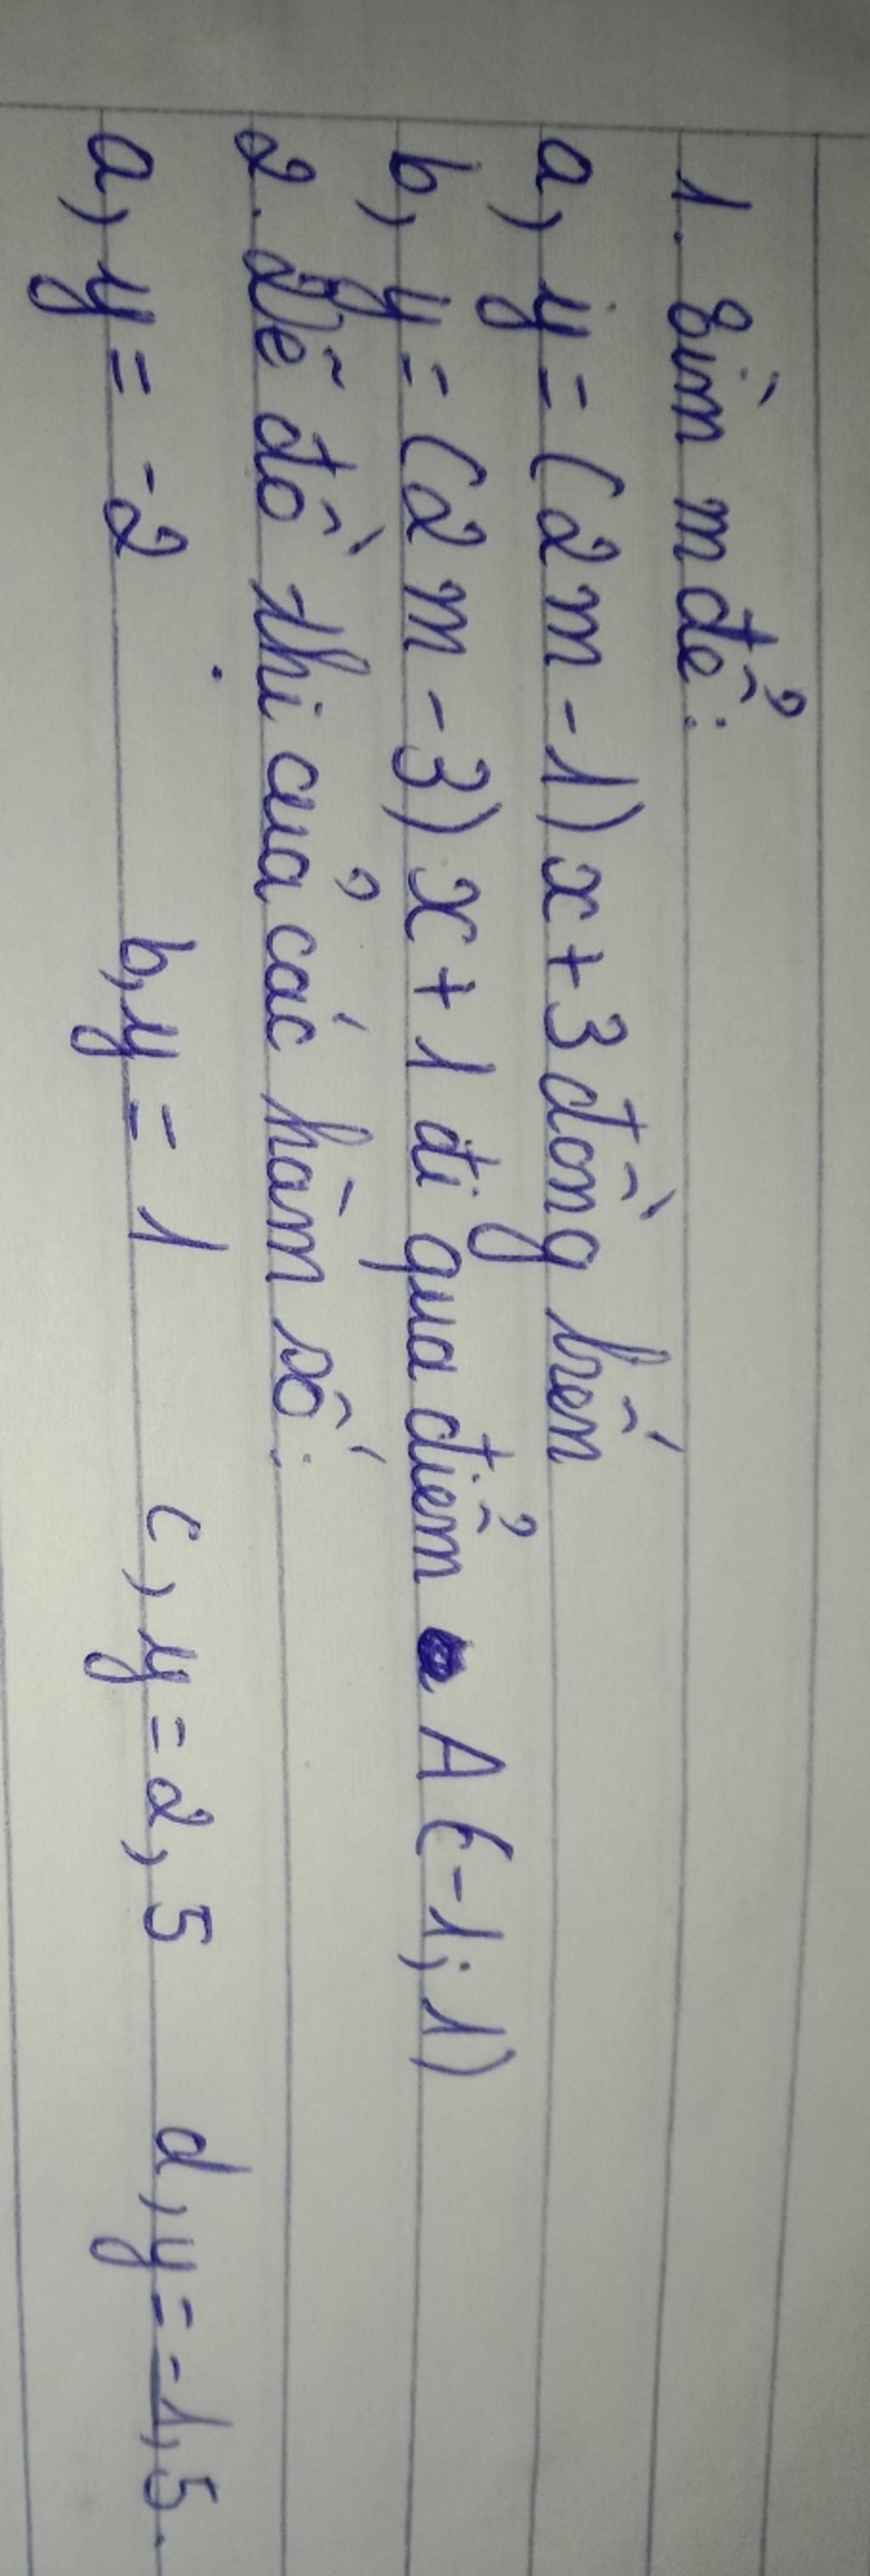 1. Tìm m để:
a, y = (2m - 1)x + 3 đồng biến
b, y = (2m - 3)x + 1 đi qua điểm A(-1; 1)
2. Vẽ đồ thị của các hàm số:
a, y = -2 b, y = 1 c, y = 2,5 d, y = -1,5.